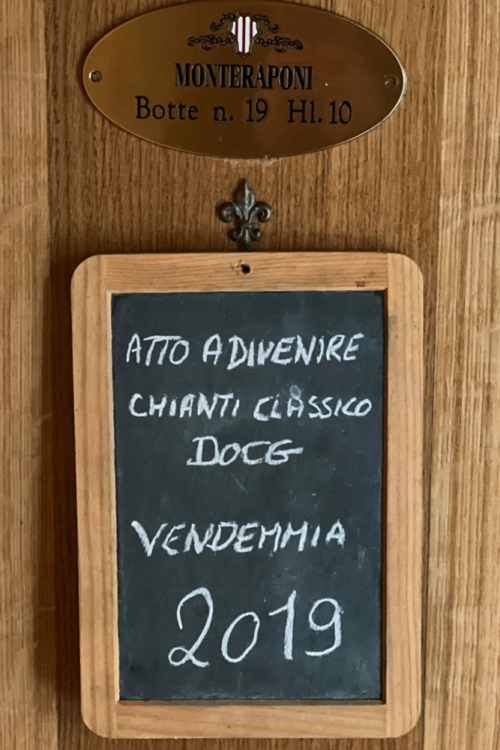 MONTERAPONI
Botte n. 19 Hl. 10
ATTO A DIVENIRE
CHIANTI CLASSICO
DOCG
VENDEMMIA
2019